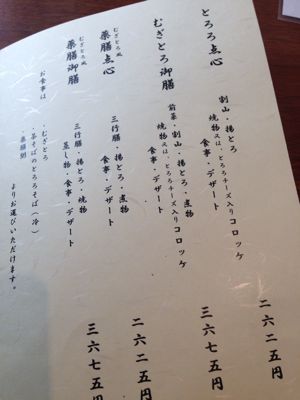 とろろ点心
割山・揚とろ
焼物又は、とろろチーズ入りコロッケ
食事・デザート
二六二五円
むぎとろ御膳
前菜・割山・揚とろ・煮物
焼物又は、とろろチーズ入りコロッケ
食事・デザート
三六七五円
むぎとろ風
薬膳点心
三行膳・揚とろ・煮物
食事・デザート
二六二五円
むぎとろ風
薬膳御膳
三行膳・揚とろ・焼物
蒸し物・食事・デザート
三六七五円
お食事は
・むぎとろ
・茶そばのとろろそば(冷)
・薬膳粥
よりお選びいただけます。